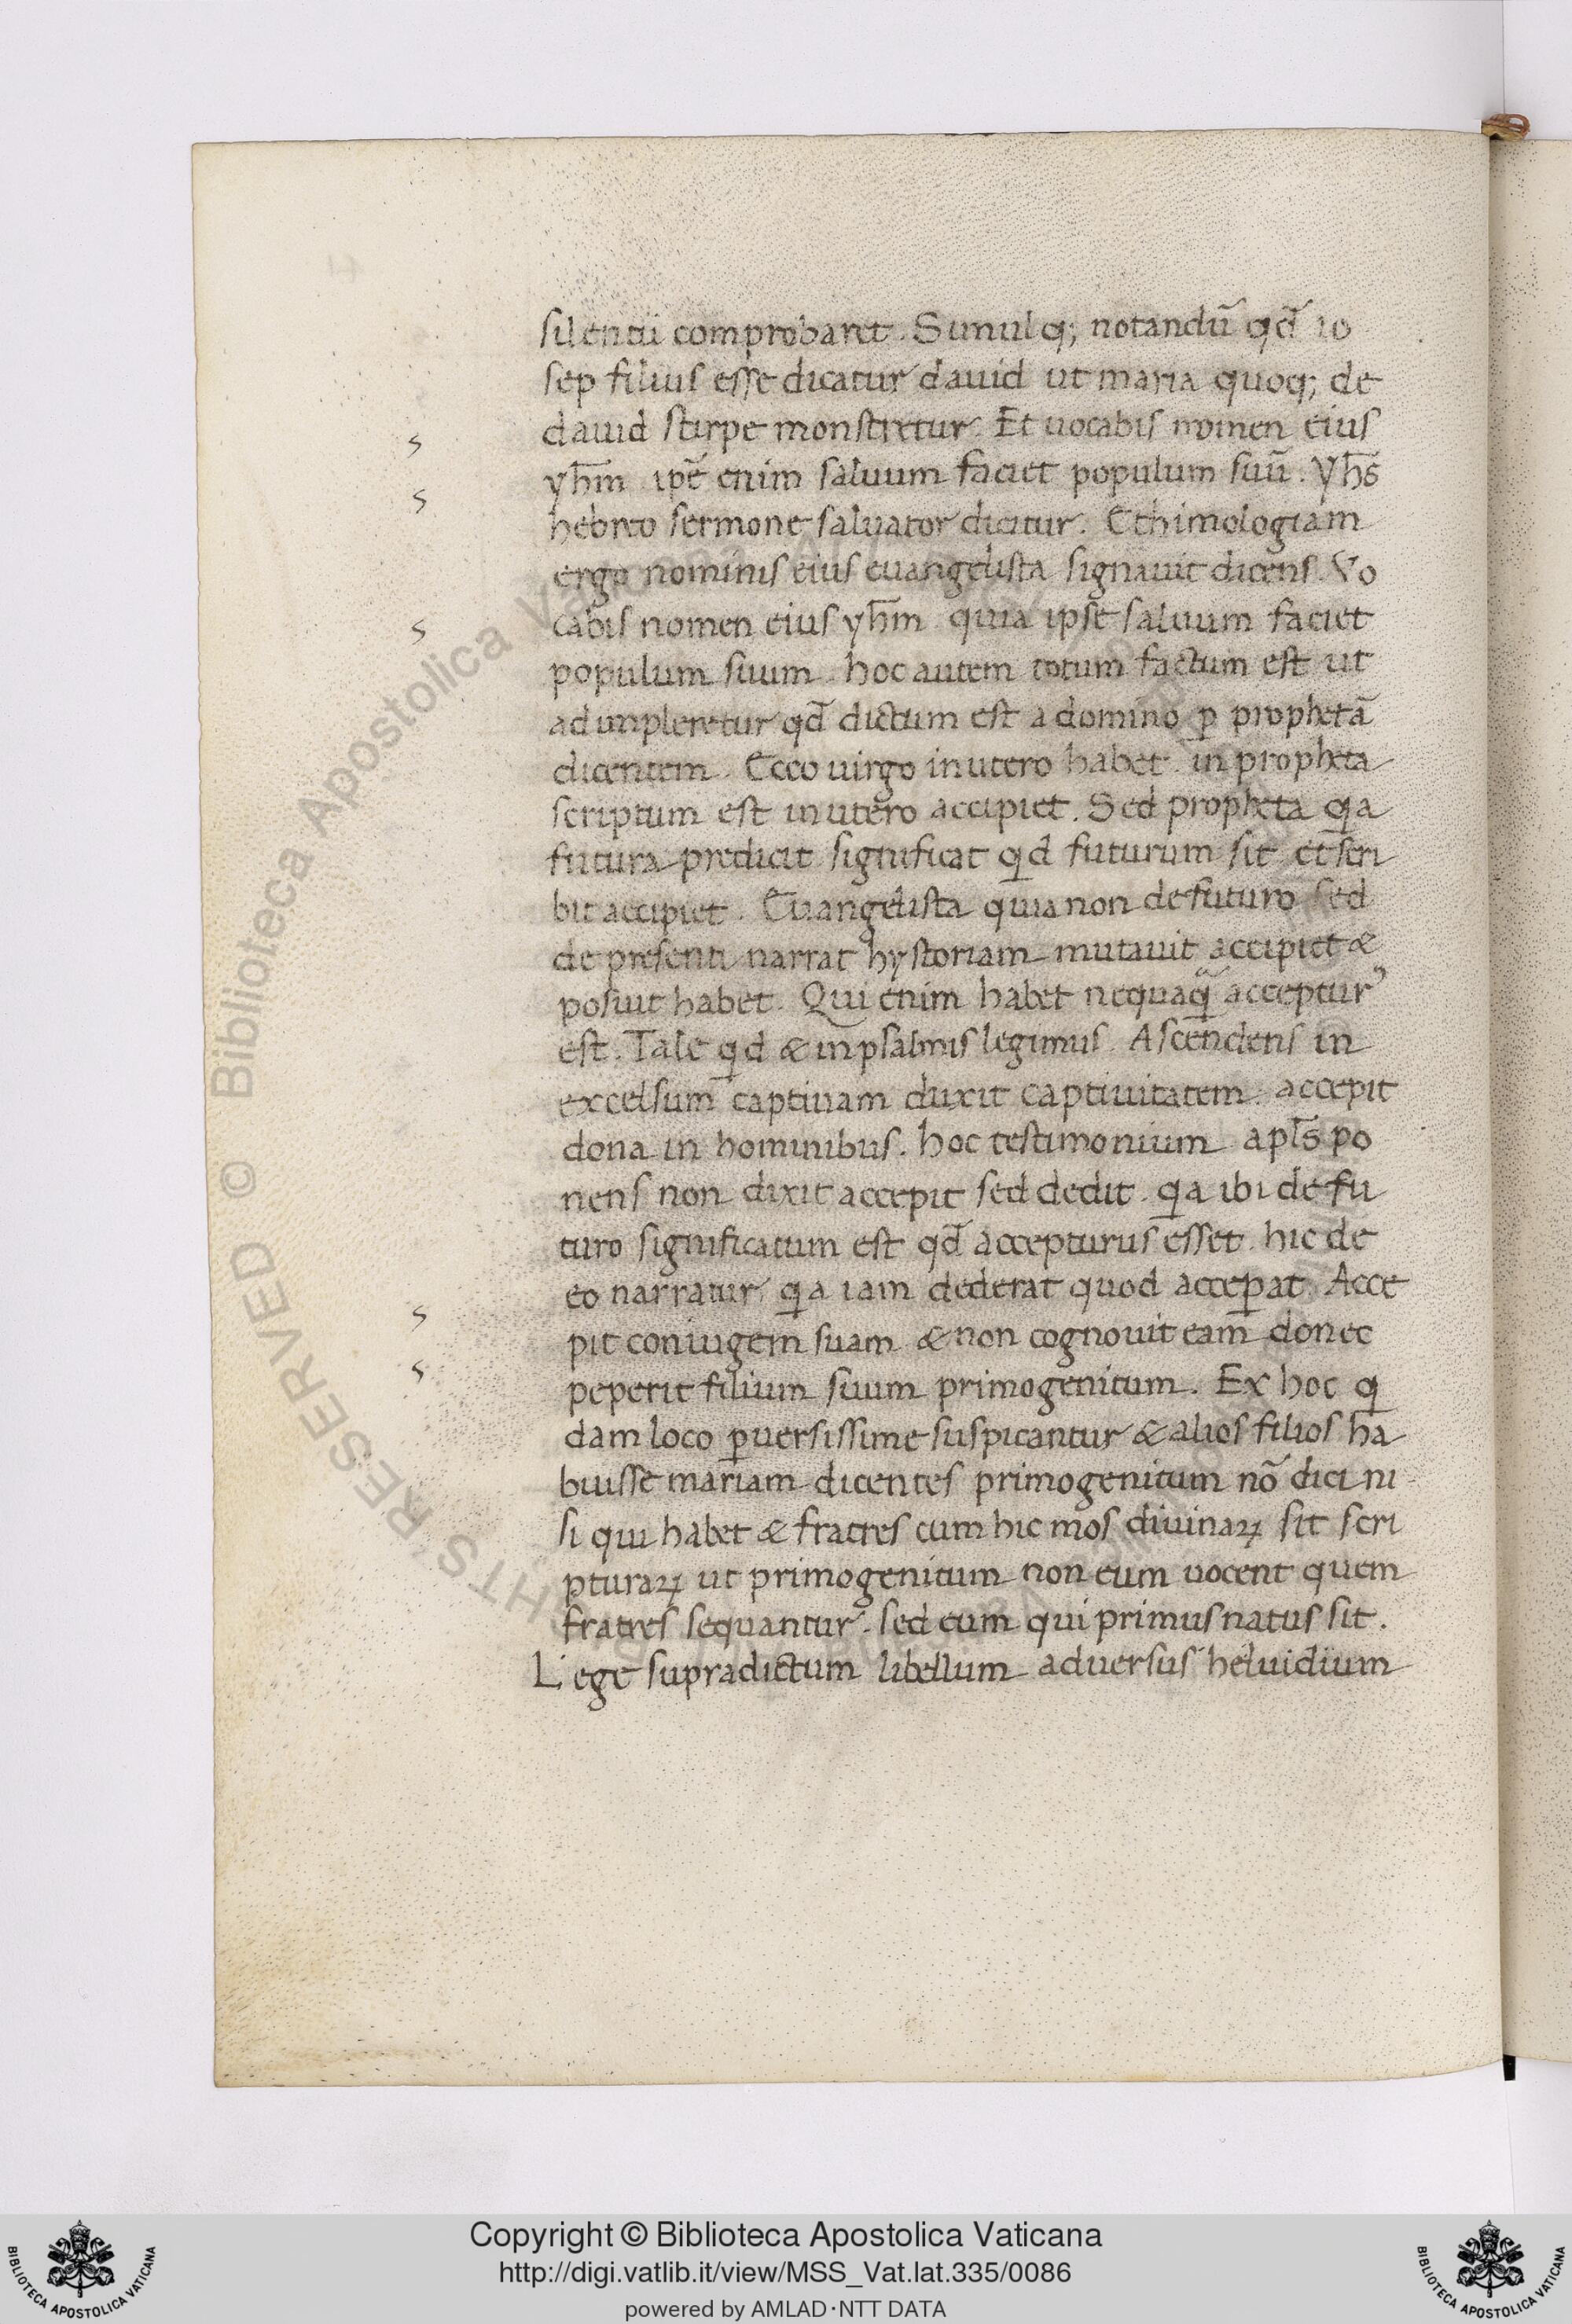 silentii comprobaret. Simulq; notandū qđ io
sep filius esse dicatur dauid ut maria quoq; de
dauid stirpe monstretur. Et uocabis nomen eius
yh̄m ip̄e enim saluum faciet populum suū. Yh̄s
hebreo sermone saluator dicitur. Ethimologiam
ergo nominis eius euangelista signauit dicens. Vo
cabis nomen eius yh̄m quia ipse saluum faciet
populum suum. hoc autem totum factum est ut
adimpleretur qđ dictum est a domino ꝑ prophetā
dicentem. Ecce uirgo in utero habet. in propheta
scriptum est in utero accipiet. Sed propheta ꝗa
futura predicit significat ꝗd futurum sit et scri
bit accipiet. Euangelista quia non de futuro sed
de presenti narrat hystoriam mutauit accipiet &
posuit habet. Qui enim habet nequaꝗ̄ acceptur᾿
est. Tale ꝗd & in psalmis legimus. Ascendens in
excelsum captiuam duxit captiuitatem. accepit
dona in hominibus. hoc testimonium apl̄s po
nens non dixit accepit sed dedit. ꝗa ibi de fu
turo significatum est qđ accepturus esset. hic de
eo narratur ꝗa iam dederat quod acceꝑat. Acce
pit coniugem suam & non cognouit eam donec
peperit filium suum primogenitum. Ex hoc ꝗ
dam loco ꝑuersissime suspicantur & alios filios ha
buisse mariam dicentes primogenitum nō dici ni
si qui habet & fratres cum hic mos diuinaꝝ sit scri
pturaꝝ ut primogenitum non eum uocent quem
fratres sequantur. sed eum qui primus natus sit.
Lege supradictum libellum aduersus heluidium
Copyright © Biblioteca Apostolica Vaticana
http://digi.vatlib.it/view/MSS_Vat.lat.335/0086
powered by AMLAD·NTT DATA